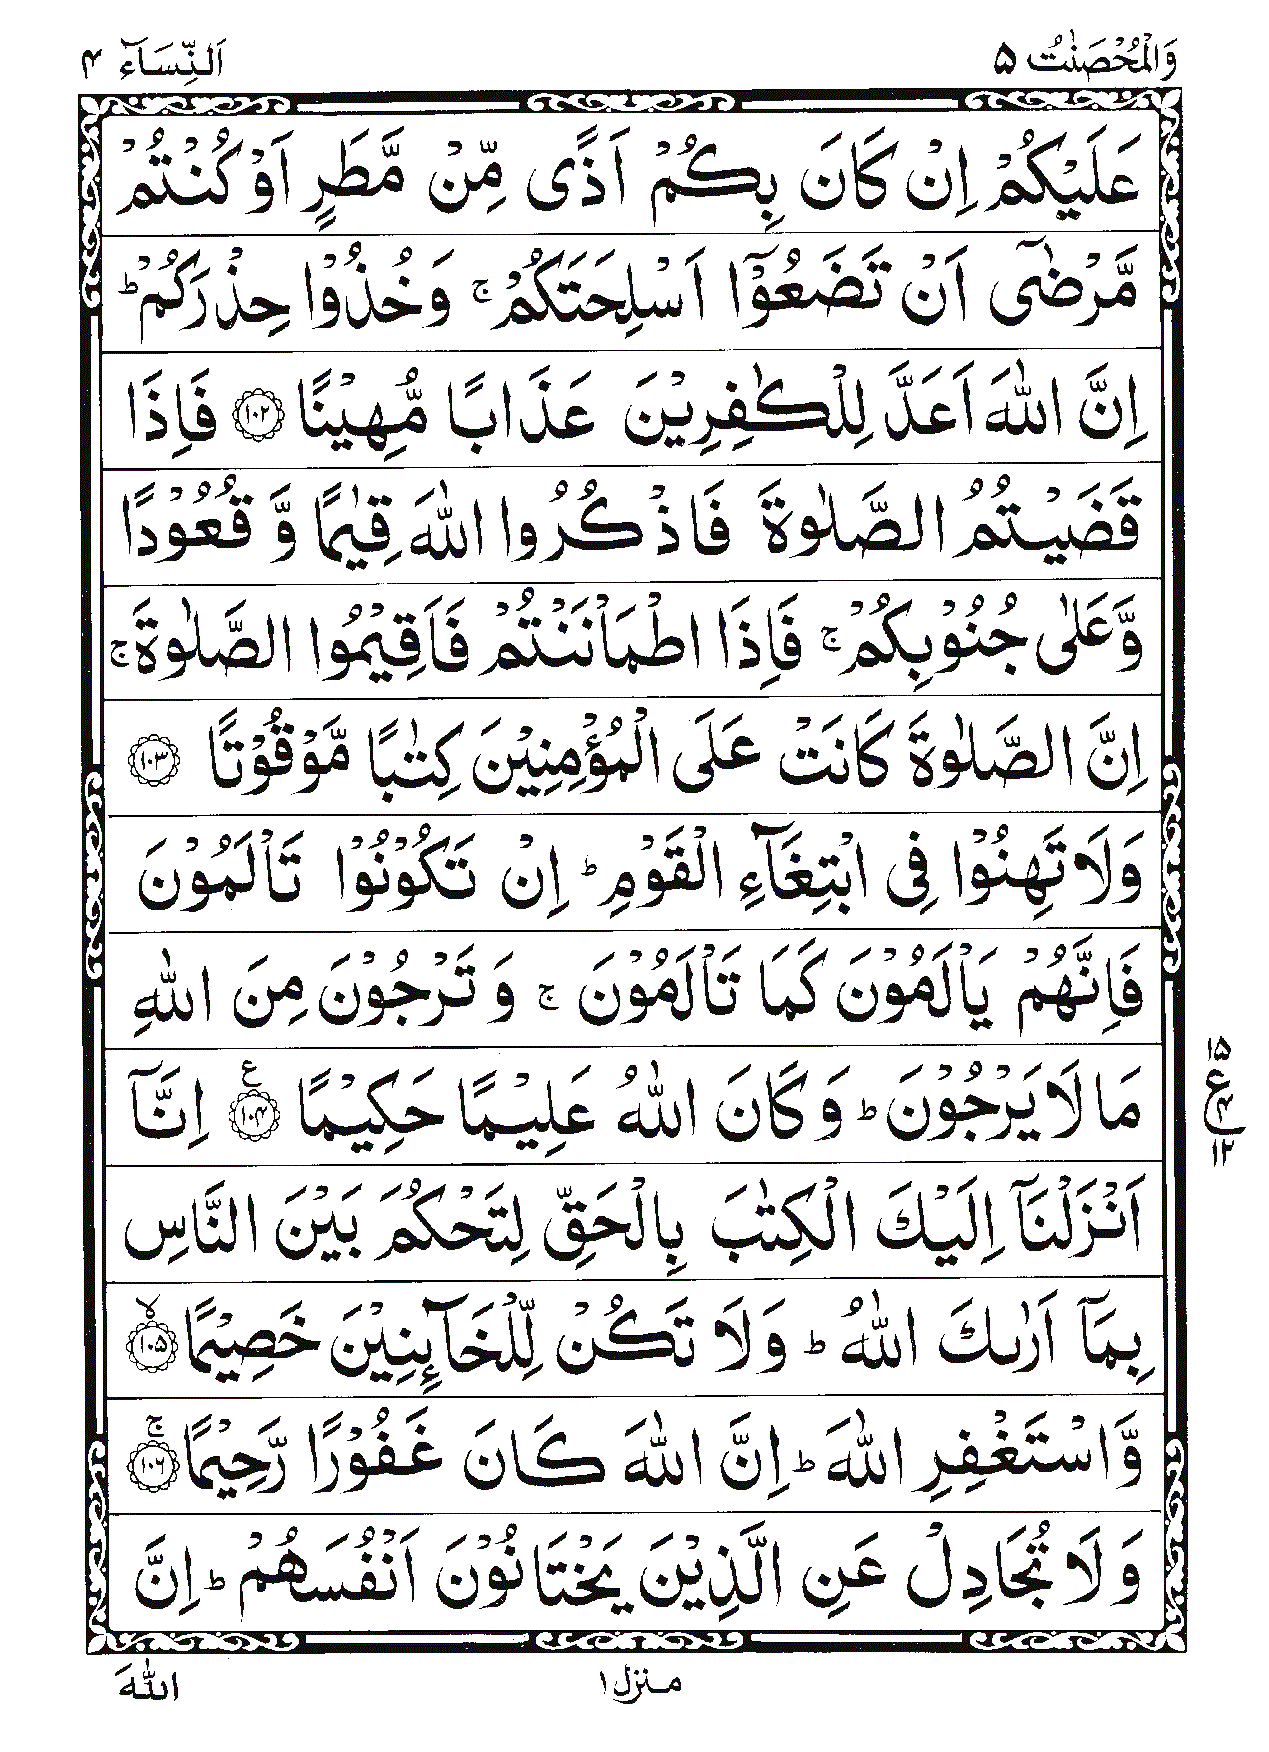 وَالْمُحْصَنٰتُ ۵ اَلنِّسَآء ۴
عَلَيْكُمْ اِنْ كَانَ بِكُمْ اَذًى مِّنْ مَّطَرٍ اَوْ كُنْتُمْ
مَّرْضٰٓى اَنْ تَضَعُوْٓا اَسْلِحَتَكُمْ ۚ وَخُذُوْا حِذْرَكُمْ ؕ
اِنَّ اللّٰهَ اَعَدَّ لِلْكٰفِرِيْنَ عَذَابًا مُّهِيْنًا ﴿۱۰۲﴾ فَاِذَا
قَضَيْتُمُ الصَّلٰوةَ فَاذْكُرُوا اللّٰهَ قِيٰمًا وَّ قُعُوْدًا
وَّعَلٰى جُنُوْبِكُمْ ۚ فَاِذَا اطْمَاْنَنْتُمْ فَاَقِيْمُوا الصَّلٰوةَ ۚ
اِنَّ الصَّلٰوةَ كَانَتْ عَلَى الْمُؤْمِنِيْنَ كِتٰبًا مَّوْقُوْتًا ﴿۱۰۳﴾
وَلَا تَهِنُوْا فِى ابْتِغَآءِ الْقَوْمِ ؕ اِنْ تَكُوْنُوْا تَاْلَمُوْنَ
فَاِنَّهُمْ يَاْلَمُوْنَ كَمَا تَاْلَمُوْنَ ۚ وَ تَرْجُوْنَ مِنَ اللّٰهِ
مَا لَا يَرْجُوْنَ ؕ وَ كَانَ اللّٰهُ عَلِيْمًا حَكِيْمًا ﴿۱۰۴﴾ ع اِنَّآ
۱۵
ع ۴
۱۲
اَنْزَلْنَآ اِلَيْكَ الْكِتٰبَ بِالْحَقِّ لِتَحْكُمَ بَيْنَ النَّاسِ
بِمَآ اَرٰىكَ اللّٰهُ ؕ وَلَا تَكُنْ لِّلْخَآئِنِيْنَ خَصِيْمًا ﴿۱۰۵﴾ ۙ
وَّاسْتَغْفِرِ اللّٰهَ ؕ اِنَّ اللّٰهَ كَانَ غَفُوْرًا رَّحِيْمًا ﴿۱۰۶﴾ ۚ
وَلَا تُجَادِلْ عَنِ الَّذِيْنَ يَخْتَانُوْنَ اَنْفُسَهُمْ ؕ اِنَّ
منزل ۱
اللّٰهَ